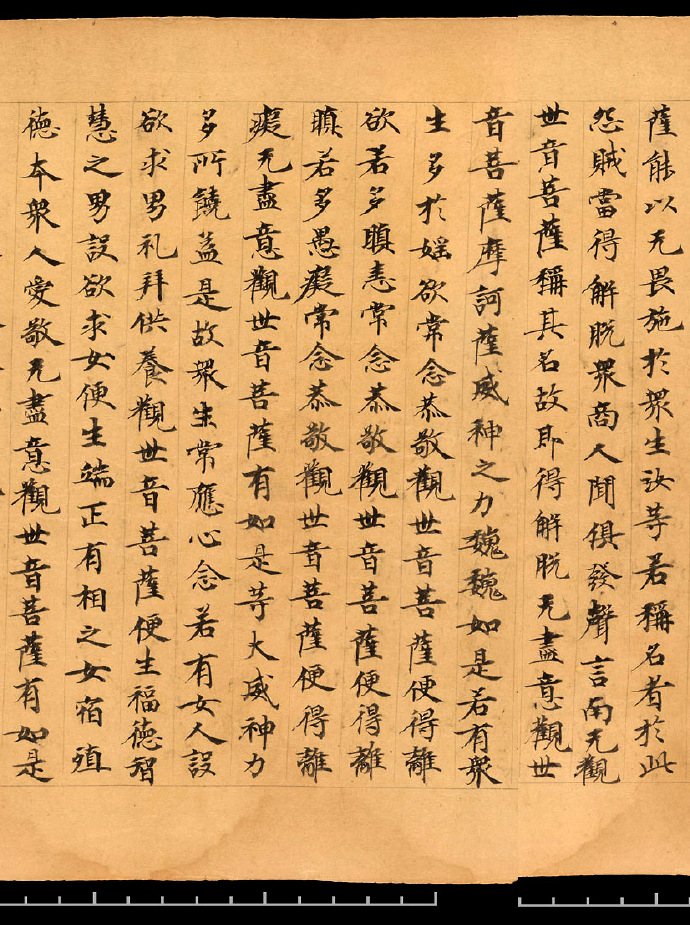 薩能以无畏施於衆生汝等若稱名者於此
怨賊當得解脫衆商人聞俱發聲言南无觀
世音菩薩稱其名故即得解脫无盡意觀世
音菩薩摩訶薩威神之力巍巍如是若有衆
生多於婬欲常念恭敬觀世音菩薩便得離
欲若多瞋恚常念恭敬觀世音菩薩便得離
瞋若多愚癡常念恭敬觀世音菩薩便得離
癡无盡意觀世音菩薩有如是等大威神力
多所饒益是故衆生常應心念若有女人設
欲求男礼拜供養觀世音菩薩便生福德智
慧之男設欲求女便生端正有相之女宿殖
德本衆人愛敬无盡意觀世音菩薩有如是